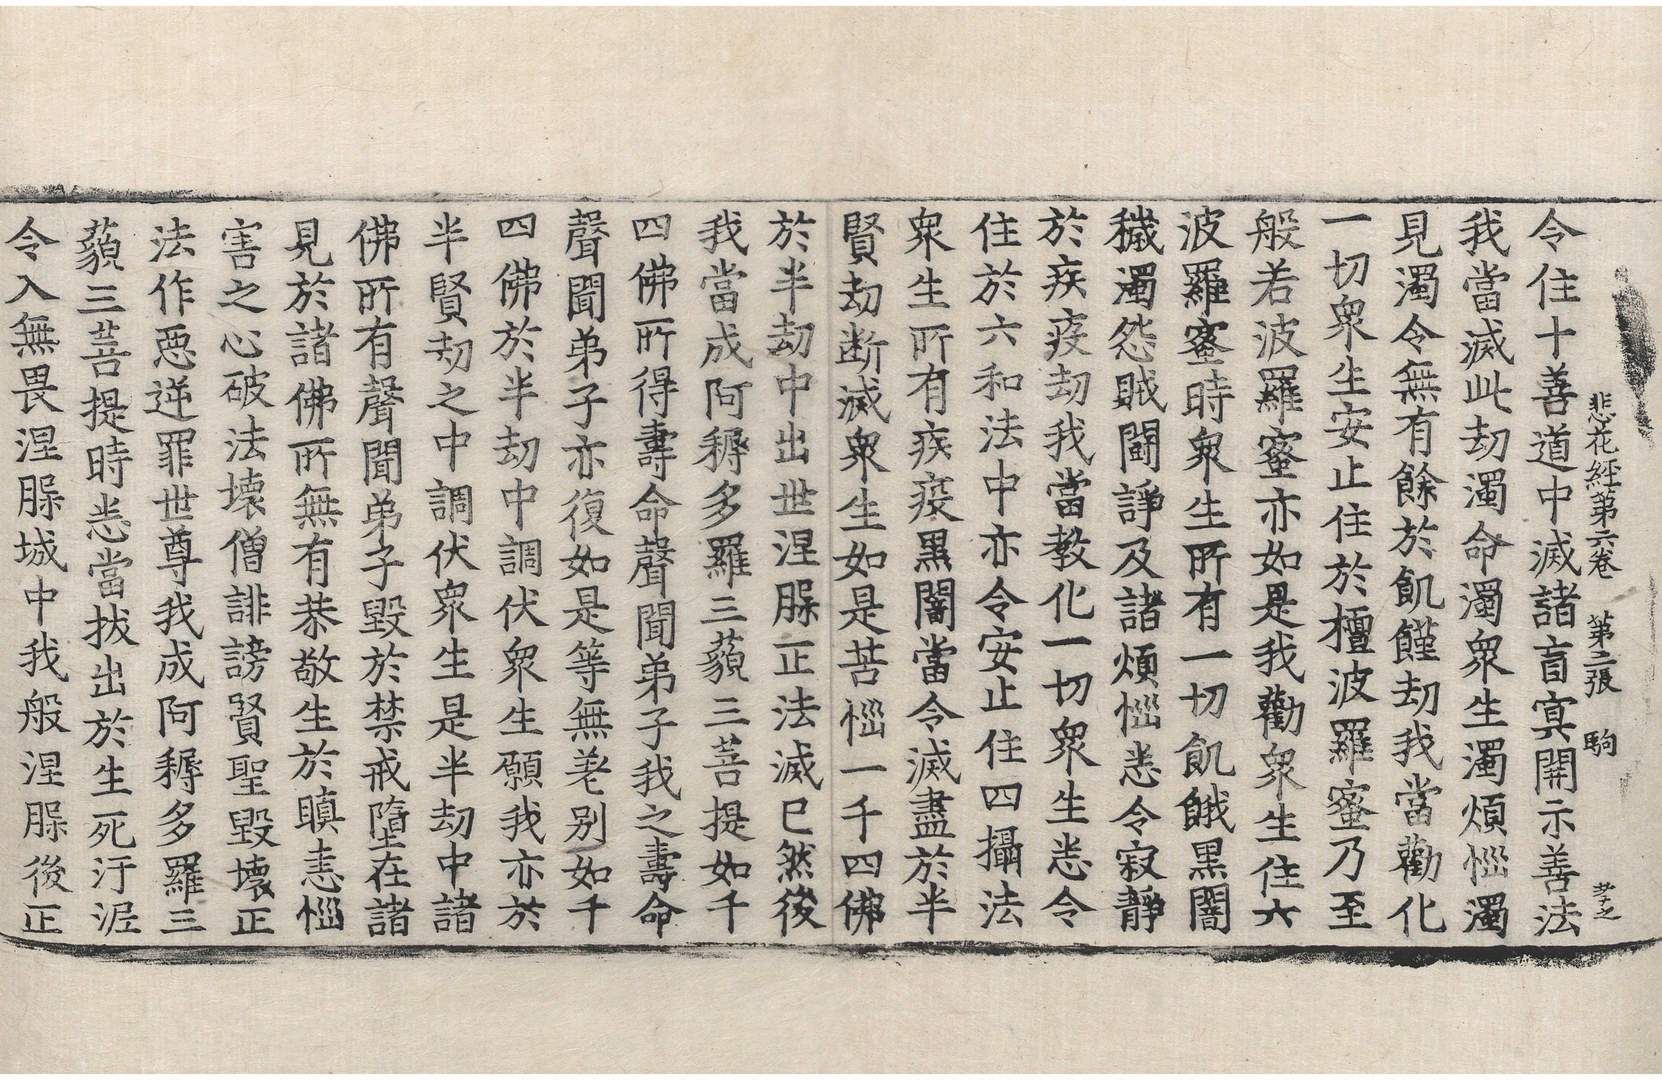 悲花經第六卷　第二張　駒　尹之
令住十善道中滅諸盲冥開示善法
我當滅此劫濁命濁衆生濁煩惱濁
見濁令無有餘於飢饉劫我當勸化
一切衆生安止住於檀波羅蜜乃至
般若波羅蜜亦如是我勸衆生住六
波羅蜜時衆生所有一切飢餓黑闇
穢濁怨賊鬪諍及諸煩惱悉令寂靜
於疾疫劫我當教化一切衆生悉令
住於六和法中亦令安止住四攝法
衆生所有疾疫黒闇當令滅盡於半
賢劫斷滅衆生如是苦惱一千四佛
於半劫中出世涅槃正法滅已然後
我當成阿耨多羅三藐三菩提如千
四佛所得壽命聲聞弟子我之壽命
聲聞弟子亦復如是等無差別如千
四佛於半劫中調伏衆生願我亦於
半賢劫之中調伏衆生是半劫中諸
佛所有聲聞弟子毀於禁戒墮在諸
見於諸佛所無有恭敬生於瞋恚惱
害之心破法壞僧誹謗賢聖毀壞正
法作惡逆罪世尊我成阿耨多羅三
藐三菩提時悉當拔出於生死汙泥
令入無畏涅槃城中我般涅槃後正